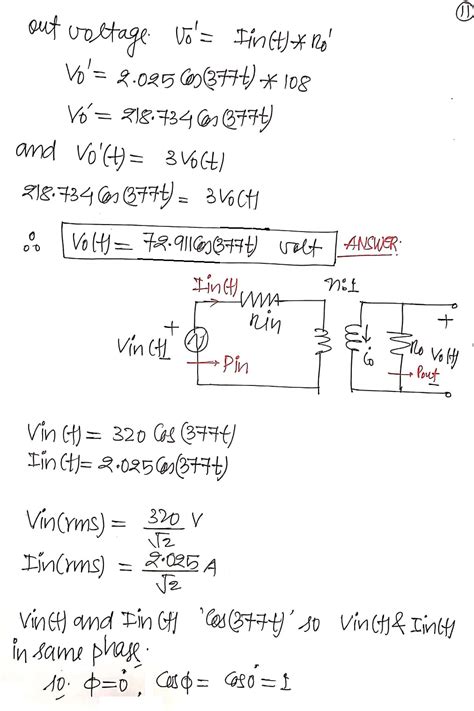 11
out voltage Vo' = Iin(t) * Ro'
Vo' = 2.025 Cos(377t) * 108
Vo' = 218.734 Cos(377t)
and Vo'(t) = 3Vo(t)
218.734 Cos(377t) = 3Vo(t)
∴ Vo(t) = 72.911 Cos(377t) volt ANSWER.
Iin(t) n:1
Rin
+ +
Vin(t) io Ro Vo(t)
Pin Pout
Vin(t) = 320 Cos(377t)
Iin(t) = 2.025 Cos(377t)
Vin(rms) = 320/√2 V
Iin(rms) = 2.025/√2 A
Vin(t) and Iin(t) 'Cos(377t)' so Vin(t) & Iin(t)
in same phase.
so. ϕ=0°, Cosϕ = Cos0° = 1